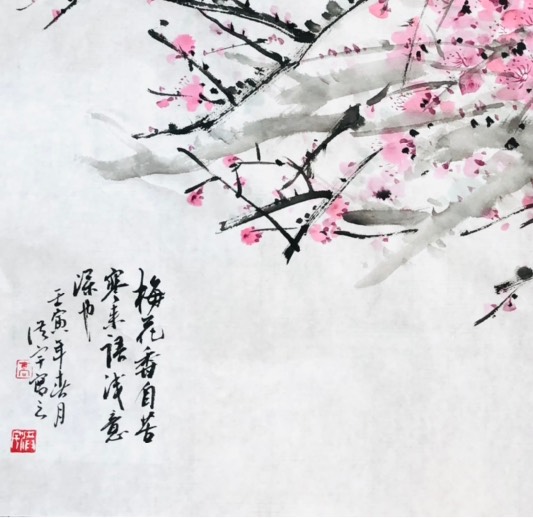 梅花香自苦
寒来语浅意
深也
壬寅年春月
洪宇寫之